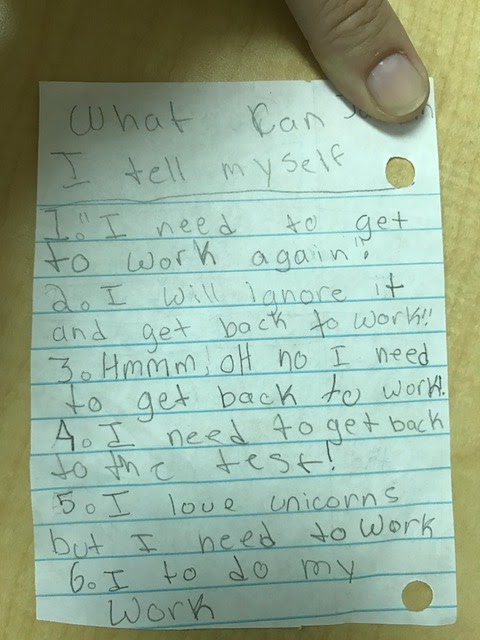 What Can
I tell myself
1."I need to get
to work again".
2. I will ignore it
and get back to work!!
3. Hmmm, oH no I need
to get back to work!
4. I need to get back
to the test!
5. I love unicorns
but I need to work
6. I to do my
work